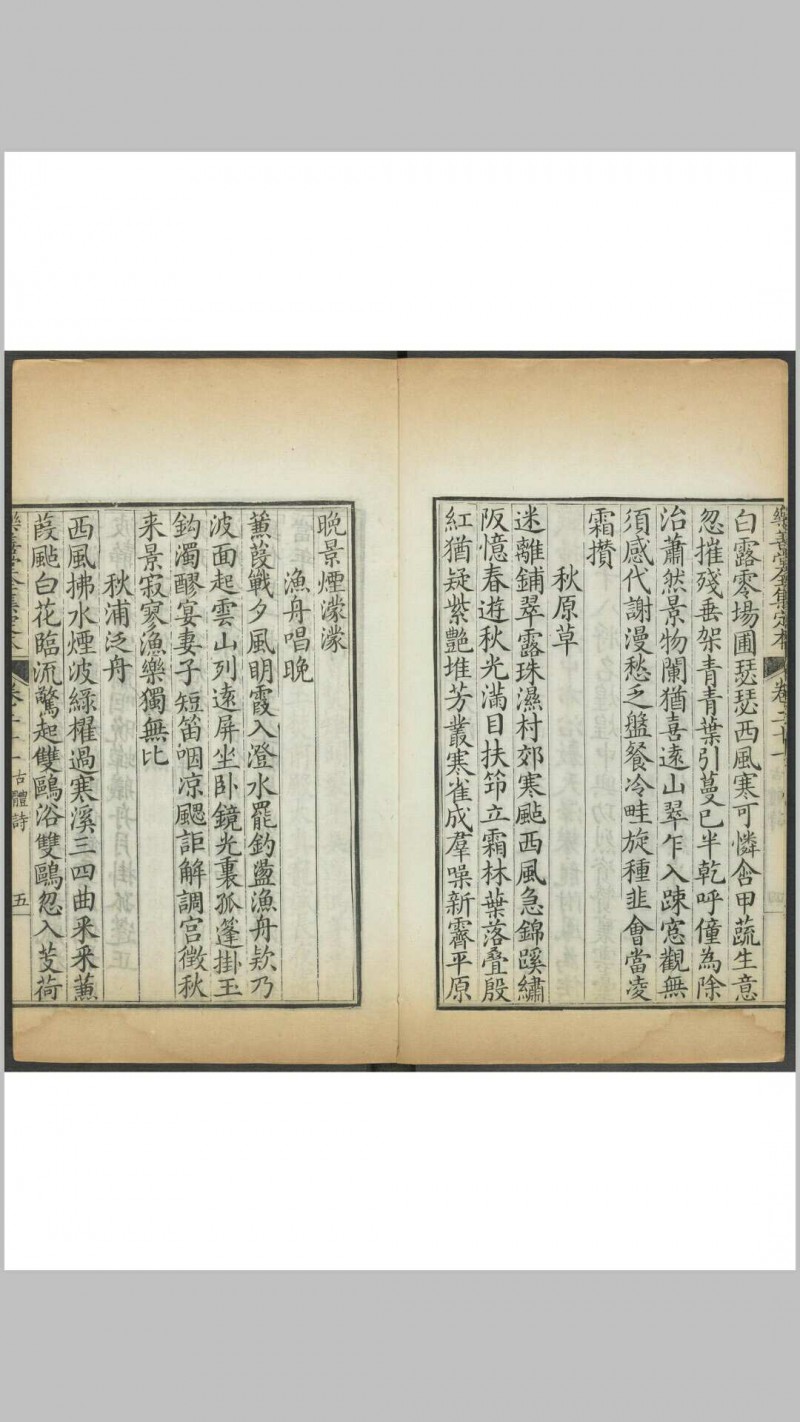 樂善堂全集定本 卷二十一
白露零場圃瑟瑟西風寒可憐含甲蔬生意
忽摧殘垂架青青葉引蔓已半乾呼僮為除
治蕭然景物闌猶喜遠山翠乍入疎窓觀無
須感代謝漫愁乏盤餐冷畦旋種韭會當凌
霜攢
秋原草
迷離鋪翠露珠濕村郊寒颭西風急錦蹊繡
阪憶春遊秋光滿目扶筇立霜林葉落疊殷
紅猶疑紫艷堆芳叢寒雀成羣噪新霽平原
晚景煙濛濛
漁舟唱晚
蒹葭戰夕風明霞入澄水罷釣蕩漁舟欵乃
波面起雲山列遠屏坐卧鏡光裏孤篷掛玉
鈎濁醪宴妻子短笛咽凉颸詎解調宫徵秋
来景寂寥漁樂獨無比
秋浦泛舟
西風拂水煙波綠櫂過寒溪三四曲釆釆蒹
葭颭白花臨流驚起雙鷗浴雙鷗忽入芰荷
樂善堂全集定本 卷二十一 古體詩 五